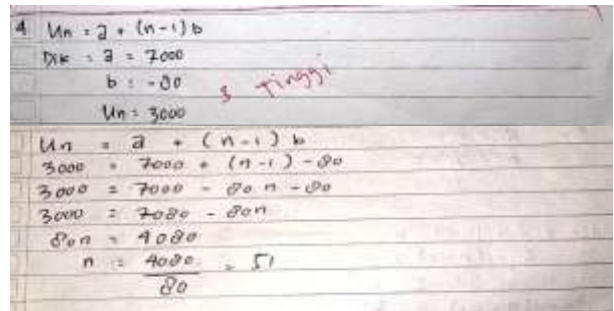 4 Un = a + (n-1) b
Dik : a = 7000
b : -80
3 Tinggi
Un = 3000
Un = a + (n-1) b
3000 = 7000 + (n-1) -80
3000 = 7000 - 80n - 80
3000 = 7080 - 80n
80n = 4080
n = 4080 = 51
80